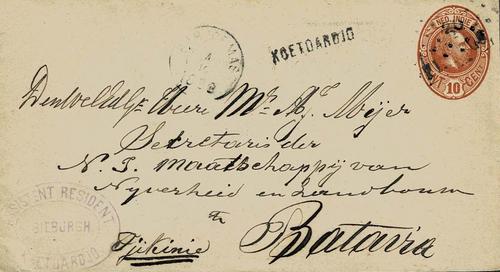 NED. INDIE
10 CENT
KOETOARDJO
WelEdGe Heere Mr. A. J. Meijer
Secretaris der
N. I. Maatschappij van
Nyverheid en Landbouw
te
Tjikinie Batavia
ASSISTENT RESIDENT
KOETOARDJO